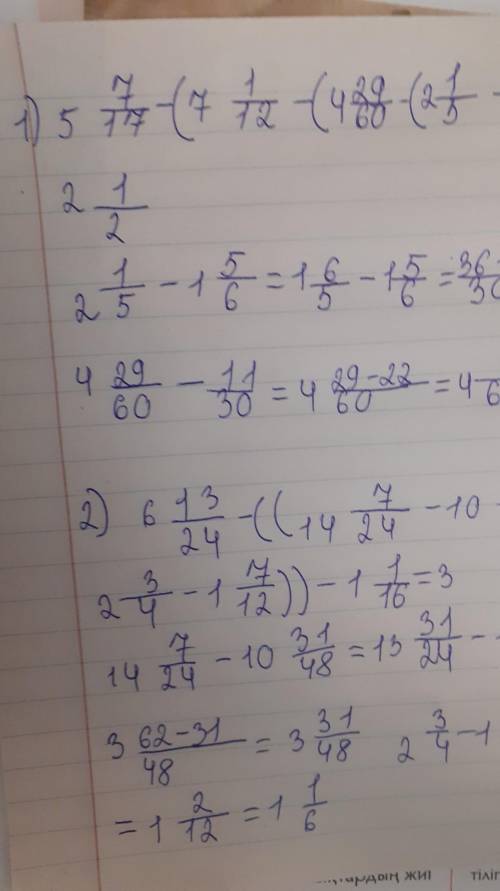 1) 5 7/17 - (7 1/12 - (4 29/60 - (2 1/5 -
2 1/2
2 1/5 - 1 5/6 = 1 6/5 - 1 5/6 = 36-/30
4 29/60 - 11/30 = 4 29-22/60 = 4 /6
2) 6 13/24 - ((14 7/24 - 10 -
2 3/4 - 1 7/12)) - 1 1/16 = 3
14 7/24 - 10 31/48 = 13 31/24 -
3 62-31/48 = 3 31/48 2 3/4 - 1
= 1 2/12 = 1 1/6
тардың жиі тіліг